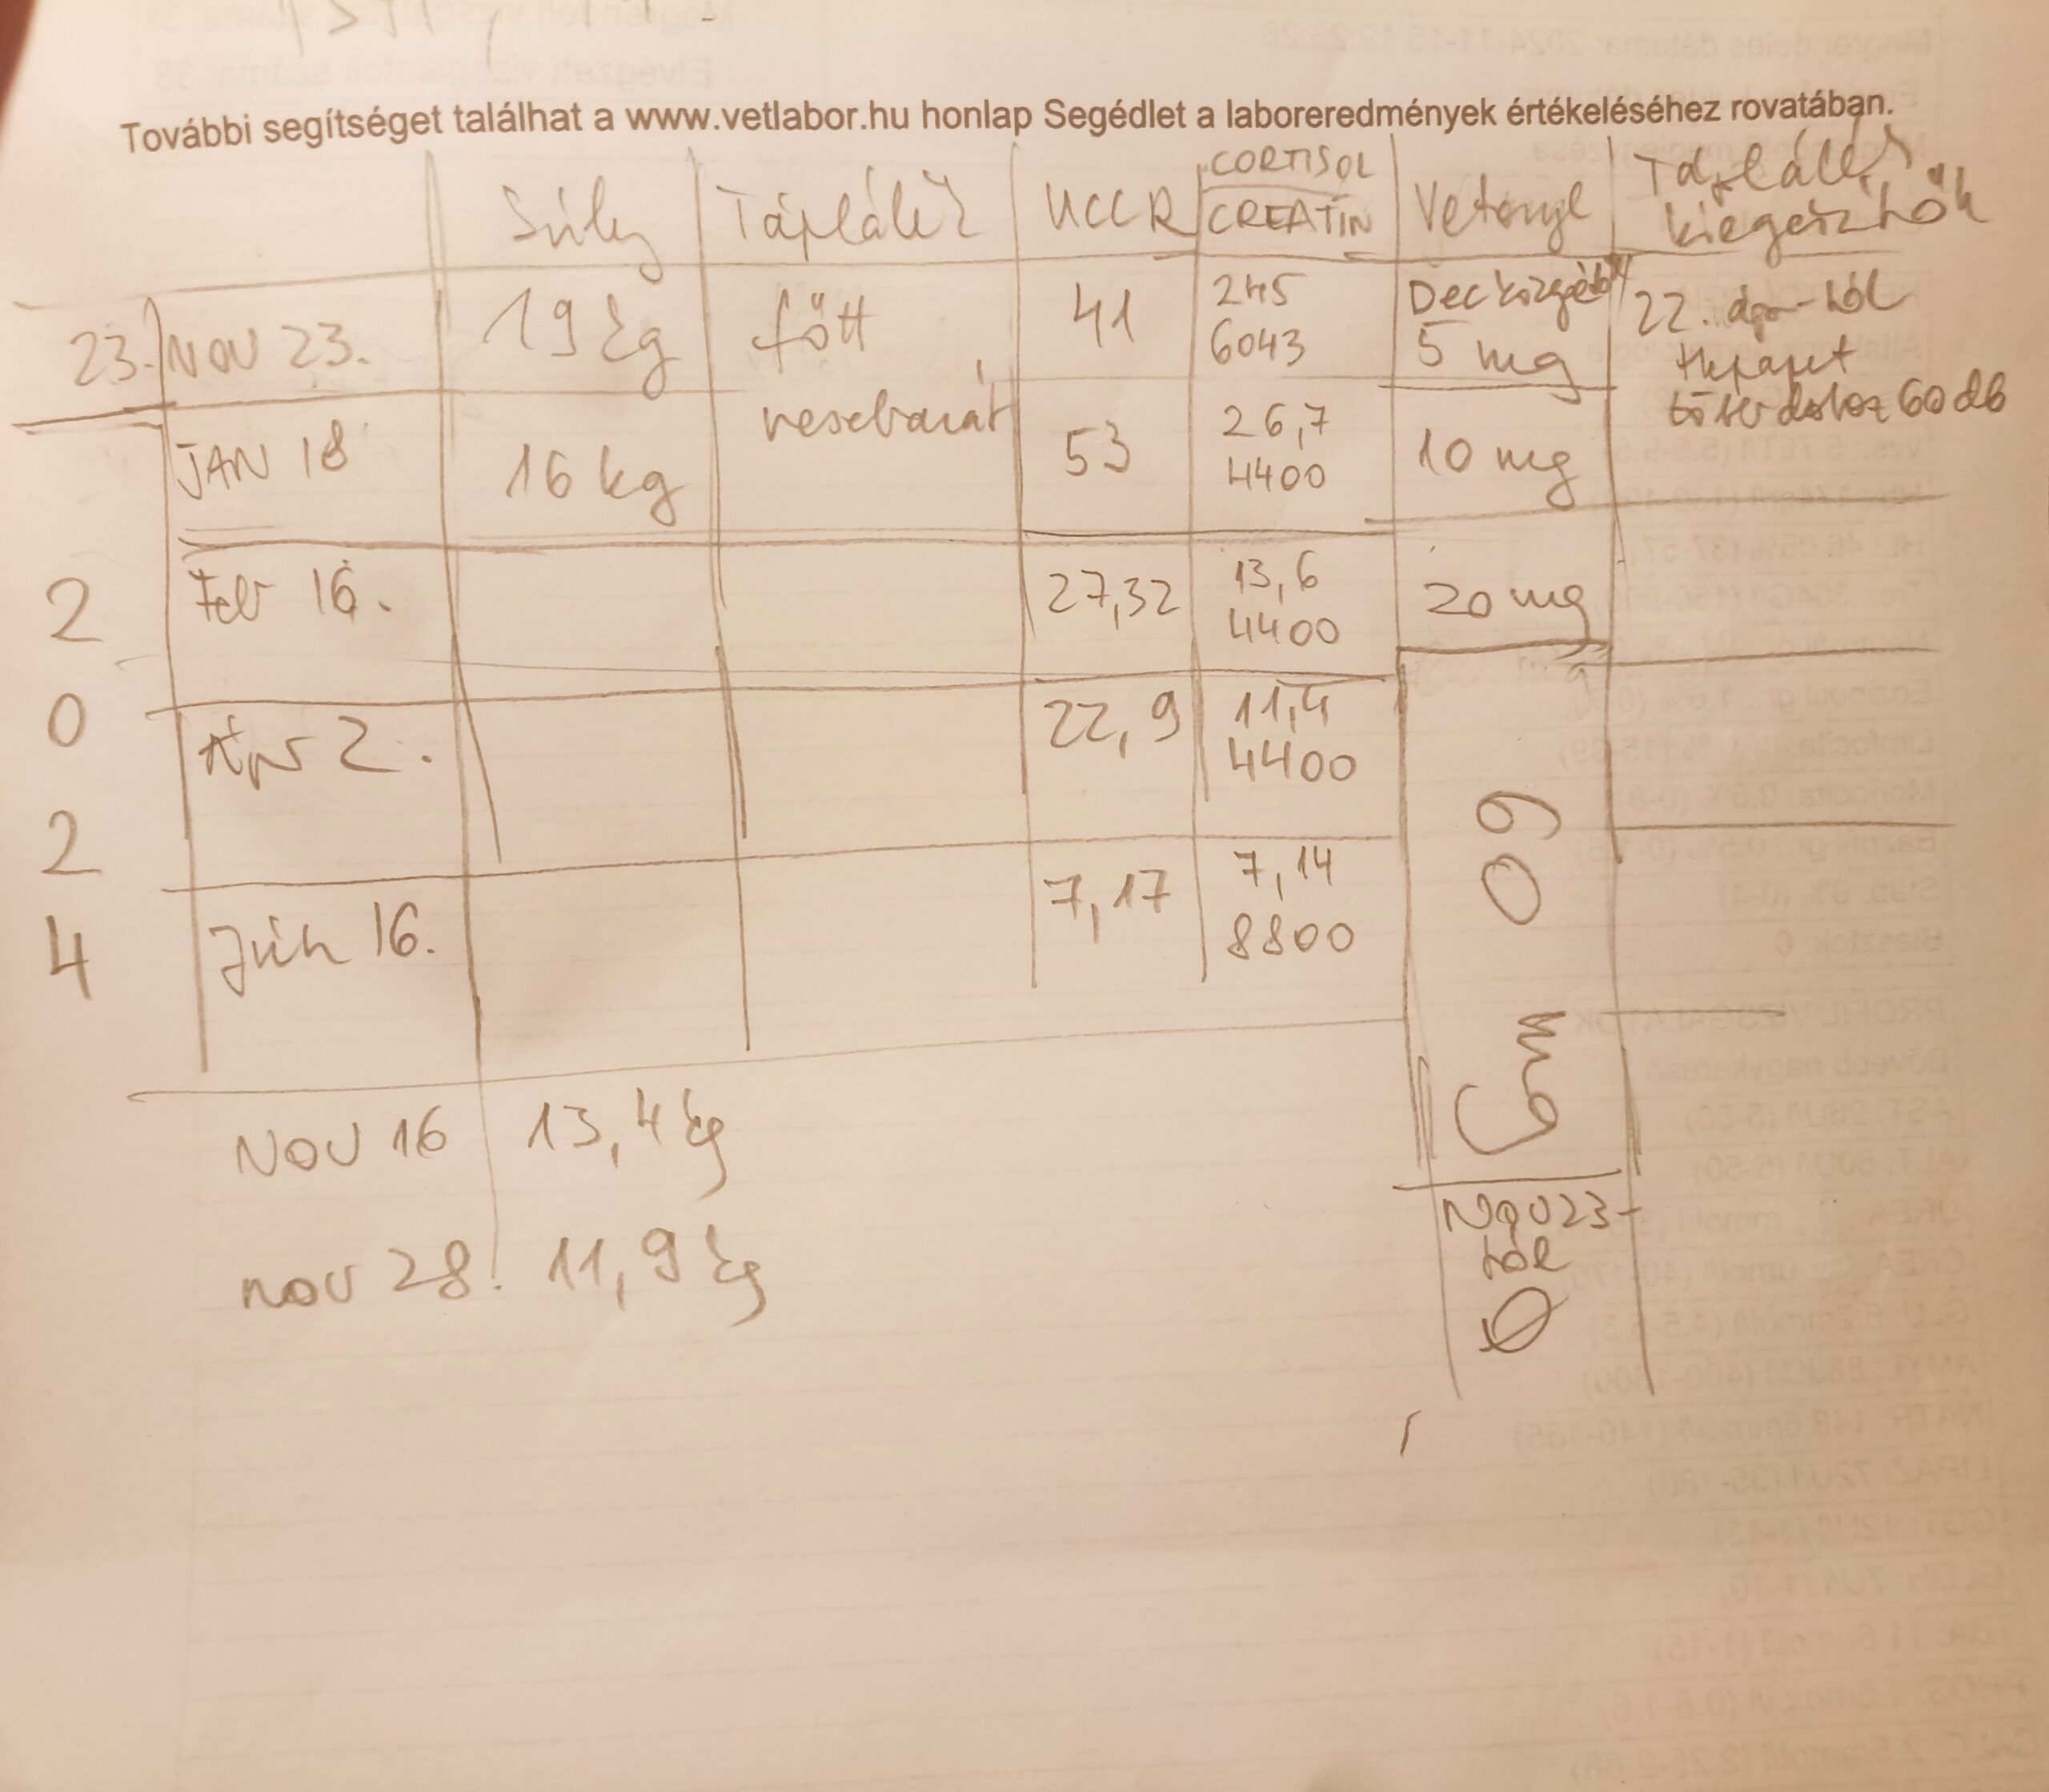 További segítséget találhat a www.vetlabor.hu honlap Segédlet a laboreredmények értékeléséhez rovatában.
Súly Táplálék UCCR CORTISOL CREATIN Vetoryl Táplálék kiegészítők
23. NOV 23. 19 kg főtt 41 245 6043 Dec közepétől 5 mg 22. ápr-tól Hepapet
vesebarát bőster doboz 60 db
JAN 18 16 kg 53 26,7 4400 10 mg
2 Feb 16. 27,32 13,6 4400 20 mg
0 Ápr 2. 22,9 11,4 4400
2
4 Jún 16. 7,17 7,14 8800
60 mg
NOV 16 13,4 kg
nov 28. 11,9 kg
Nov 23-
tól
Ø